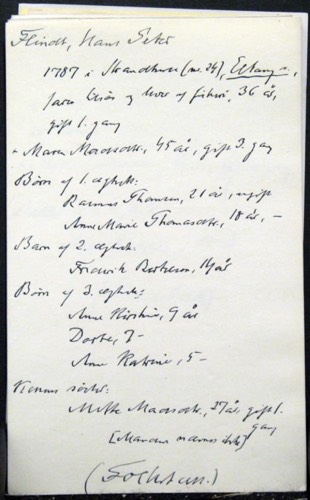 Flindt, Hans Peter
1787 i Strandhuse (nr. 24), Eltang s.,
fører liden og lever af fiskeri, 36 år,
gift 1. gang
~ Maren Madsdatter, 45 år, gift 3. gang
Børn af 1. ægtesk.:
Rasmus Thomsen, 21 år, ugift
Anne Marie Thomasdatter, 18 år, –
Barn af 2. ægtesk.:
Frederik Bertelsen, 14 år
Børn af 3. ægtesk.:
Anne Kirstine, 9 år
Dorthe, 7 –
Anne Katrine, 5 –
Konens søster:
Mette Madsdatter, 37 år, gift 1.
gang
[Mandens nævnes ikke]
(Folketæll.)